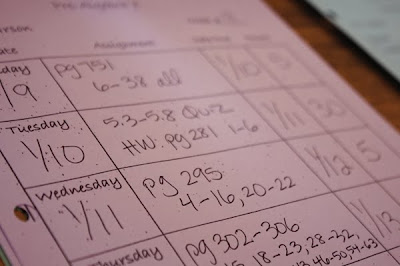 Pre Algebra 2
Assignment
day 1/9 pg 751 1/10 5
6-38 all
Tuesday 1/10 5.3-5.8 Quiz 1/11 30
HW: pg 281 1-6
Wednesday 1/11 pg 295 1/12 5
4-16, 20-22
Thursday pg 302-306 1/13
18-23, 28-32,
46-50, 54-63